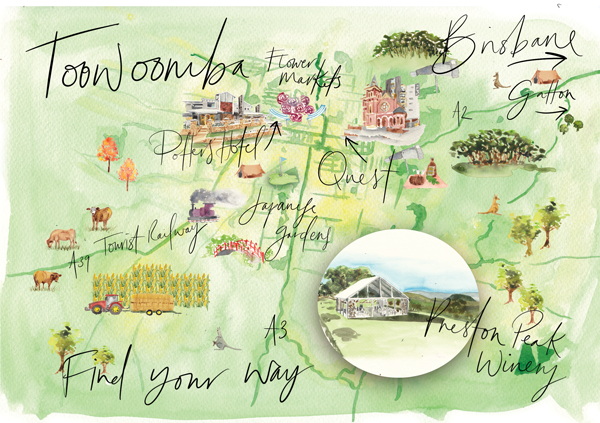 Toowoomba
Flower
Markets
Brisbane
Gatton
A2
Potters Hotel
Quest
Japanese
Gardens
A39 Tourist Railway
A3
Preston Peak
Winery
Find your way